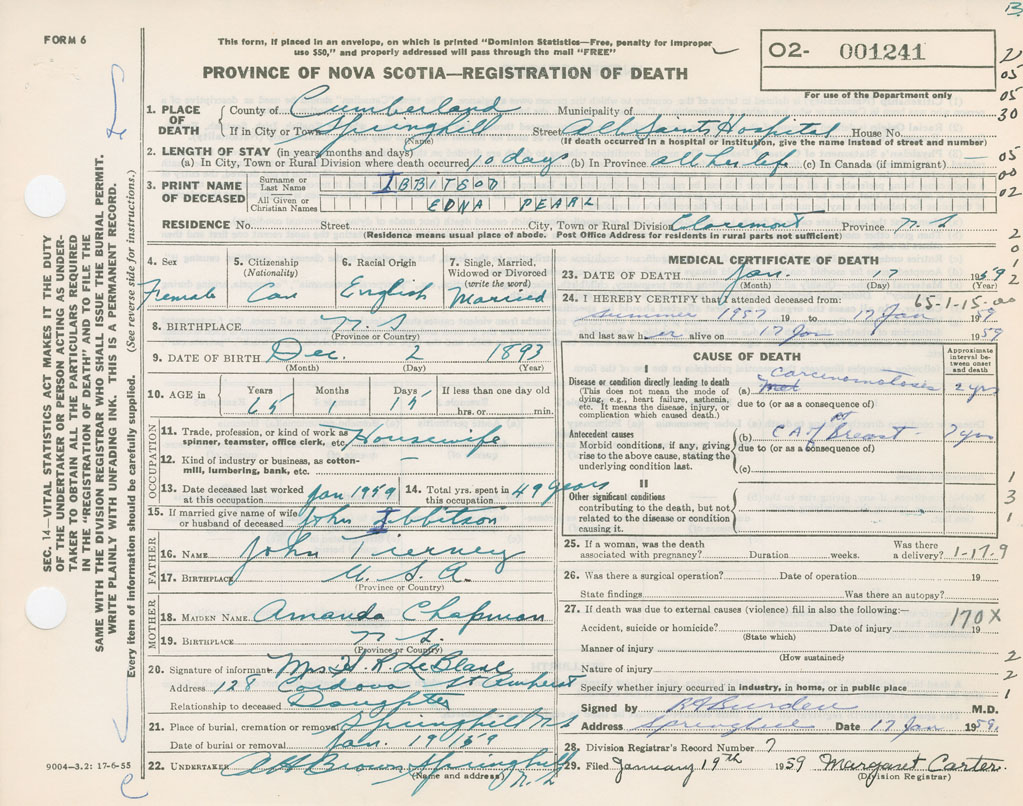 B.
FORM 6
This form, if placed in an envelope, on which is printed "Dominion Statistics—Free, penalty for improper
use $50," and properly addressed will pass through the mail "FREE"
O2- 001241
For use of the Department only
PROVINCE OF NOVA SCOTIA—REGISTRATION OF DEATH
SEC. 14—VITAL STATISTICS ACT MAKES IT THE DUTY
OF THE UNDERTAKER OR PERSON ACTING AS UNDER-
TAKER TO OBTAIN ALL THE PARTICULARS REQUIRED
IN THE "REGISTRATION OF DEATH" AND TO FILE THE
SAME WITH THE DIVISION REGISTRAR WHO SHALL ISSUE THE BURIAL PERMIT.
WRITE PLAINLY WITH UNFADING INK. THIS IS A PERMANENT RECORD.
Every item of information should be carefully supplied. (See reverse side for instructions.)
1. PLACE OF DEATH County of Cumberland Municipality of
If in City or Town Springhill Street All Saints Hospital House No.
(Name) (If death occurred in a hospital or institution, give the name instead of street and number)
2. LENGTH OF STAY (in years, months and days)
(a) In City, Town or Rural Division where death occurred 10 days (b) In Province all her life (c) In Canada (if immigrant) —
3. PRINT NAME OF DECEASED Surname or Last Name IBBITSON
All Given or Christian Names EDNA PEARL
RESIDENCE No. Street City, Town or Rural Division Claremont Province N.S
(Residence means usual place of abode. Post Office Address for residents in rural parts not sufficient)
05
05
30
05
00
02
2
0
1
2
4. Sex Female
5. Citizenship (Nationality) Can
6. Racial Origin English
7. Single, Married, Widowed or Divorced (write the word) Married
8. BIRTHPLACE N.S
(Province or Country)
9. DATE OF BIRTH Dec. 2 1893
(Month) (Day) (Year)
10. AGE in Years 65 Months 1 Days 15 If less than one day old
hrs. or min.
OCCUPATION
11. Trade, profession, or kind of work as spinner, teamster, office clerk, etc. Housewife
12. Kind of industry or business, as cotton-mill, lumbering, bank, etc. —
13. Date deceased last worked at this occupation Jan 1959
14. Total yrs. spent in this occupation 49 years
15. If married give name of wife or husband of deceased John Ibbitson
FATHER
16. NAME John Tierney
17. BIRTHPLACE U. S. A.
(Province or Country)
MOTHER
18. MAIDEN NAME Amanda Chapman
19. BIRTHPLACE N S.
(Province or Country)
20. Signature of informant Mrs H. R. LeBlanc
Address 128 Cordova St Amherst
Relationship to deceased Daughter
21. Place of burial, cremation or removal Springhill N S
Date of burial or removal Jan. 19 1959
22. UNDERTAKER A H Brown Springhill
(Name and address) N. S
9004—3.2: 17-6-55
MEDICAL CERTIFICATE OF DEATH
23. DATE OF DEATH Jan. 17 1959
(Month) (Day) (Year)
65-1-15-00
24. I HEREBY CERTIFY that I attended deceased from:
summer 1957 19 to 17 Jan 1959
and last saw her alive on 17 Jan 1959
CAUSE OF DEATH
Approximate interval between onset and death
I
Disease or condition directly leading to death
(This does not mean the mode of dying, e.g., heart failure, asthenia, etc. It means the disease, injury, or complication which caused death.)
(a) carcinomatosis 2 yrs
due to (or as a consequence of)
Antecedent causes
Morbid conditions, if any, giving rise to the above cause, stating the underlying condition last.
(b) CA of Breast 7 yrs
due to (or as a consequence of)
(c)
II
Other significant conditions
contributing to the death, but not related to the disease or condition causing it.
1
3
1
25. If a woman, was the death associated with pregnancy? Duration weeks. Was there a delivery? 1-17.9
26. Was there a surgical operation? Date of operation 19
State findings Was there an autopsy?
27. If death was due to external causes (violence) fill in also the following:—
170X
Accident, suicide or homicide? Date of injury 19
(State which)
Manner of injury
(How sustained)
Nature of injury
Specify whether injury occurred in industry, in home, or in public place
2
2
1
Signed by Burden M.D.
Address Springhill Date 17 Jan 1959.
28. Division Registrar's Record Number 7
29. Filed January 19th 1959 Margaret Carter.
(Division Registrar)